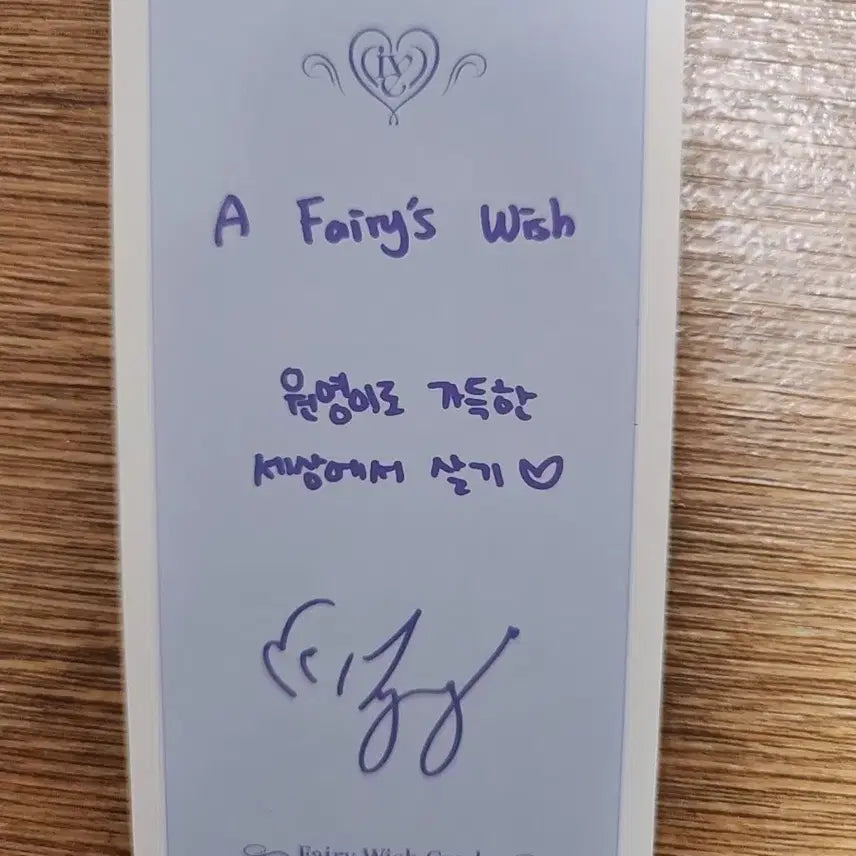 IVE
A Fairy's Wish
원영이로 가득한
세상에서 살기♡
Fairy Wish Card